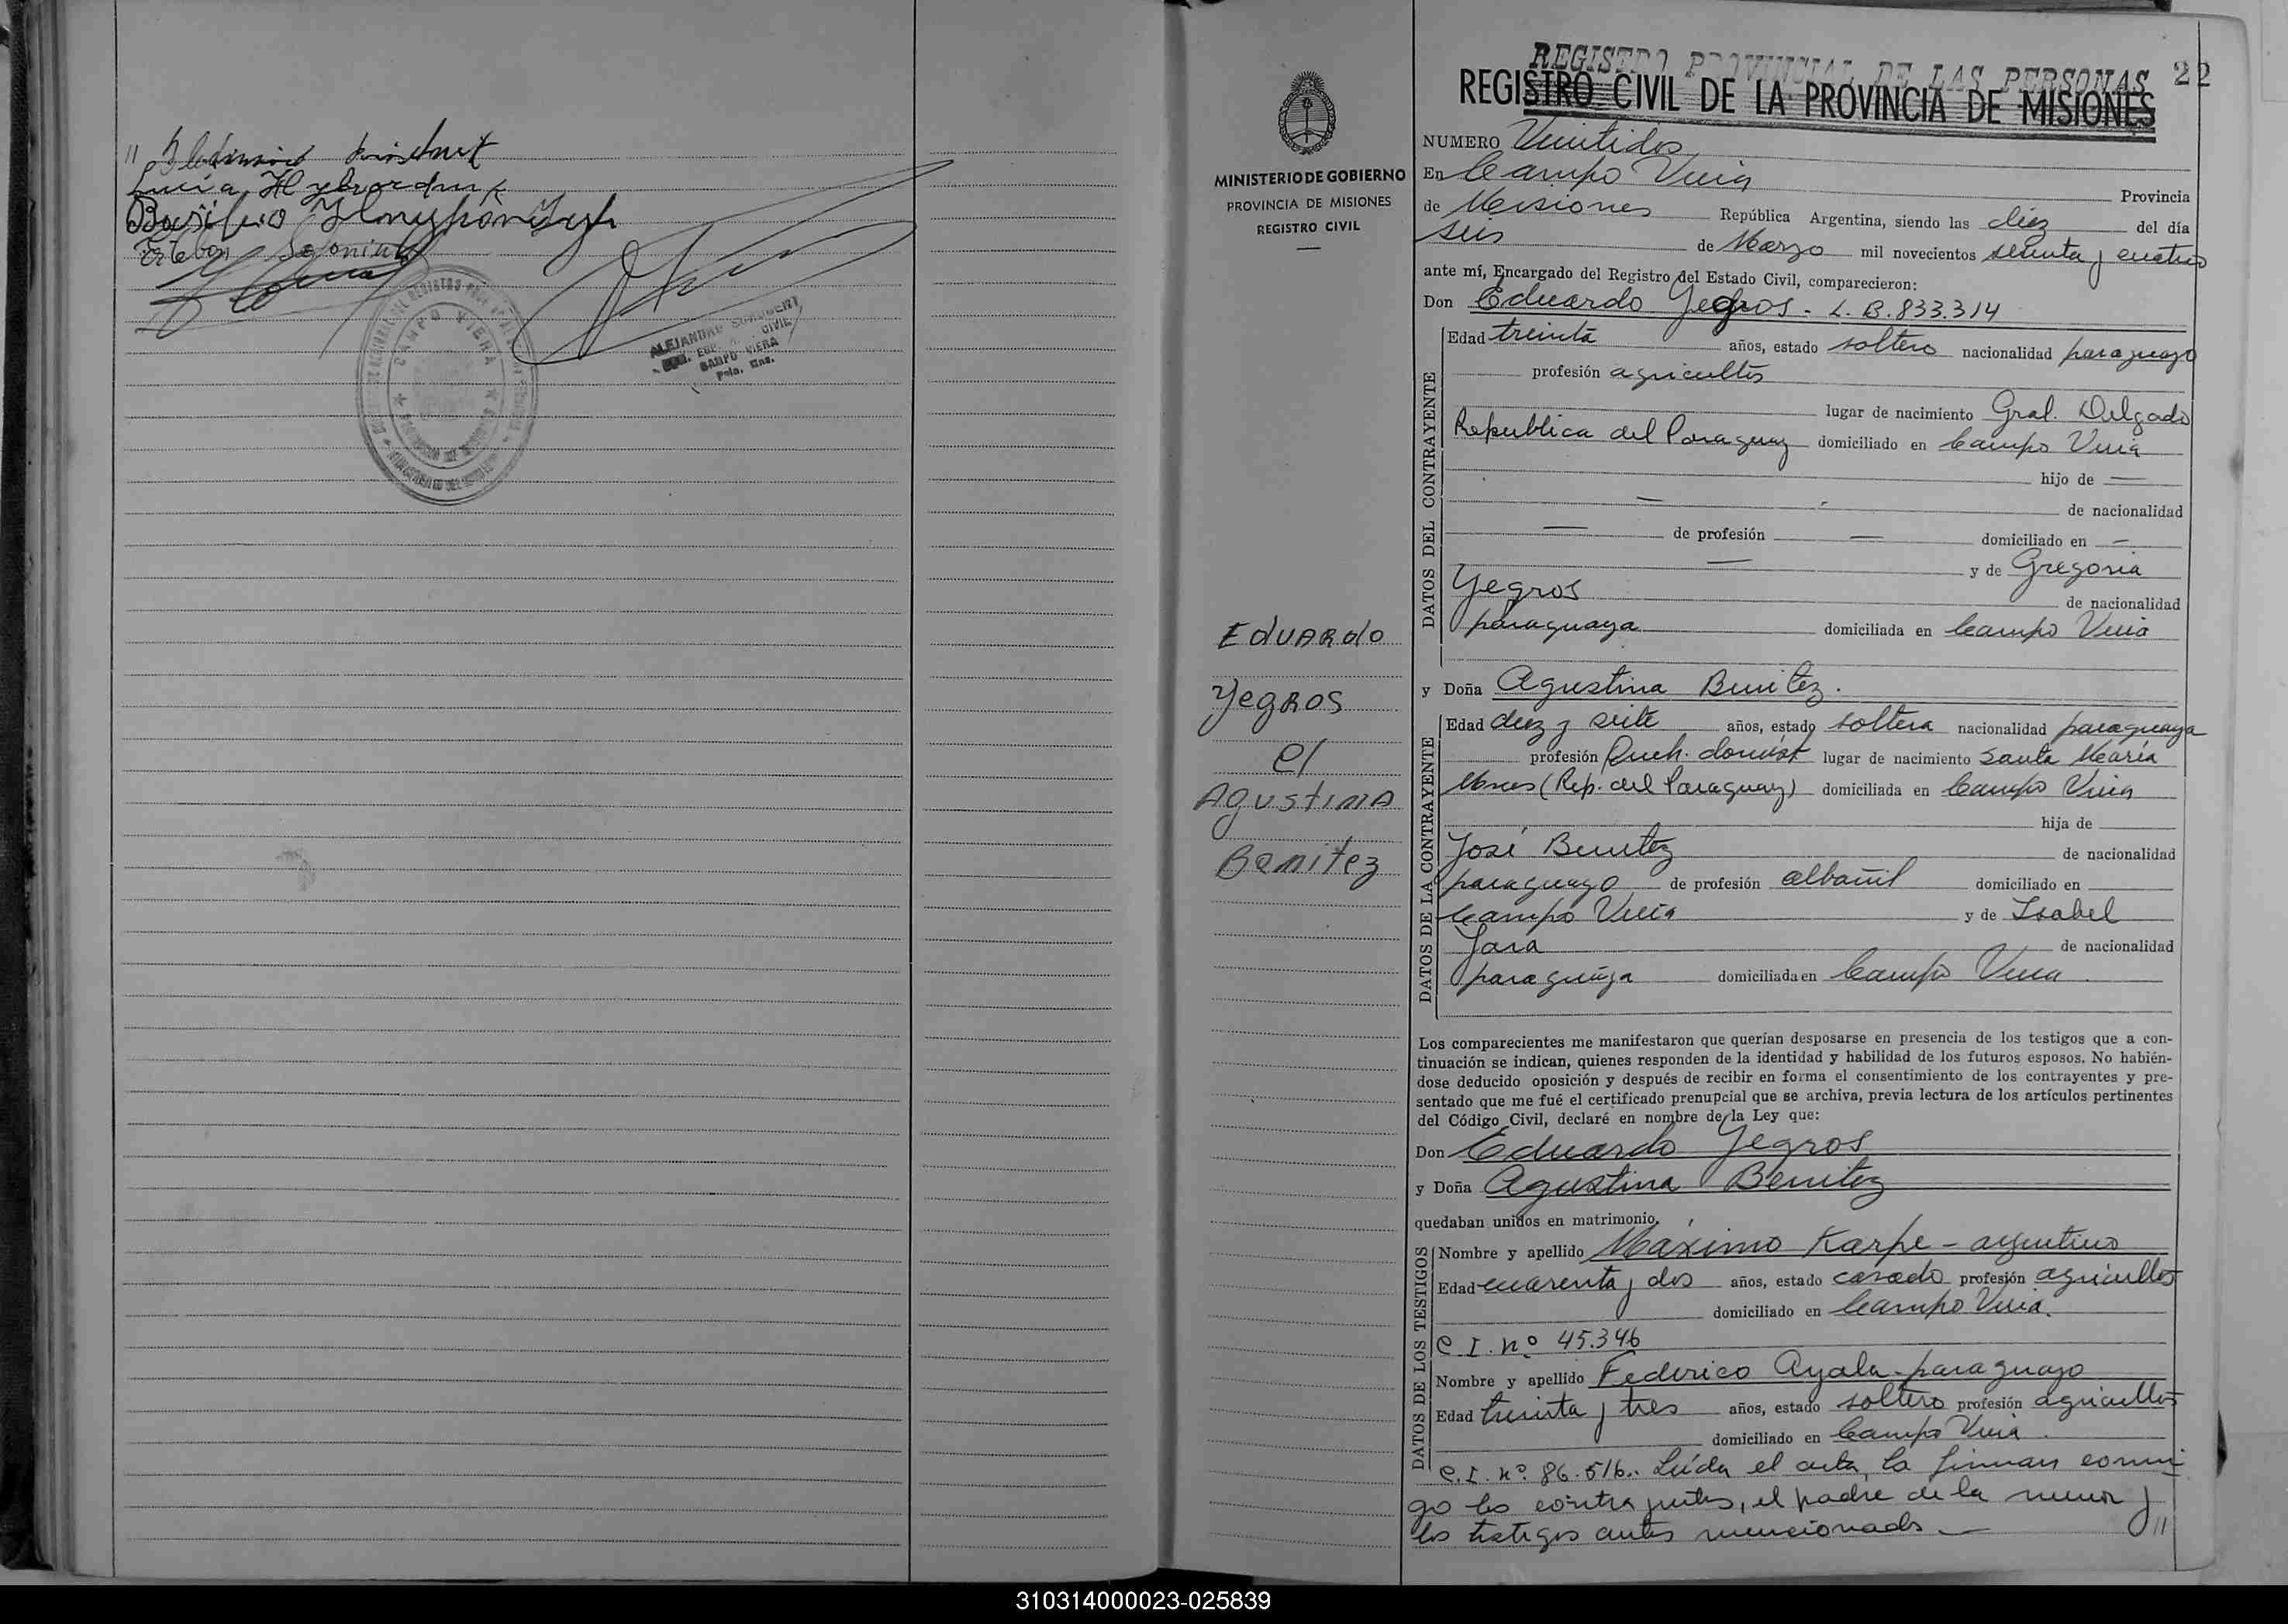 Lucía
Basilio
Esteban
CAMPO VIERA
ALEJANDRO
CIVIL
CAMPO VIERA
Pcia. Mns.
REGISTRO PROVINCIAL DE LAS PERSONAS
22
REGISTRO CIVIL DE LA PROVINCIA DE MISIONES
MINISTERIO DE GOBIERNO
PROVINCIA DE MISIONES
REGISTRO CIVIL
Eduardo
Yegros
el
Agustina
Benitez
NUMERO Veintidos
En Campo Viera Provincia
de Misiones República Argentina, siendo las diez del día
seis de Marzo mil novecientos setenta y cuatro
ante mí, Encargado del Registro del Estado Civil, comparecieron:
Don Eduardo Yegros - L.B.833.314
DATOS DEL CONTRAYENTE
Edad treinta años, estado soltero nacionalidad paraguayo
profesión agricultor
lugar de nacimiento Gral. Delgado
Republica del Paraguay domiciliado en Campo Viera
hijo de —
— de nacionalidad
— de profesión — domiciliado en —
— y de Gregoria
Yegros de nacionalidad
paraguaya domiciliada en Campo Viera
y Doña Agustina Benitez.
DATOS DE LA CONTRAYENTE
Edad diez y siete años, estado soltera nacionalidad paraguaya
profesión Queh. domést lugar de nacimiento Santa María
Mnes (Rep. del Paraguay) domiciliada en Campo Viera
hija de
José Benitez de nacionalidad
paraguayo de profesión albañil domiciliado en
Campo Viera y de Isabel
Jara de nacionalidad
paraguaya domiciliada en Campo Viera
Los comparecientes me manifestaron que querían desposarse en presencia de los testigos que a con-
tinuación se indican, quienes responden de la identidad y habilidad de los futuros esposos. No habién-
dose deducido oposición y después de recibir en forma el consentimiento de los contrayentes y pre-
sentado que me fué el certificado prenupcial que se archiva, previa lectura de los artículos pertinentes
del Código Civil, declaré en nombre de la Ley que:
Don Eduardo Yegros
y Doña Agustina Benitez
quedaban unidos en matrimonio.
DATOS DE LOS TESTIGOS
Nombre y apellido Máximo Karpe - argentino
Edad cuarenta y dos años, estado casado profesión agricultor
domiciliado en Campo Viera.
C.I. nº 45.346
Nombre y apellido Federico Ayala - paraguayo
Edad treinta y tres años, estado soltero profesión agricultor
domiciliado en Campo Viera.
C.I. nº. 86.516.. Leída el acta, la firman conmi
go los contrayentes, el padre de la menor y
los testigos antes mencionados — //
310314000023-025839